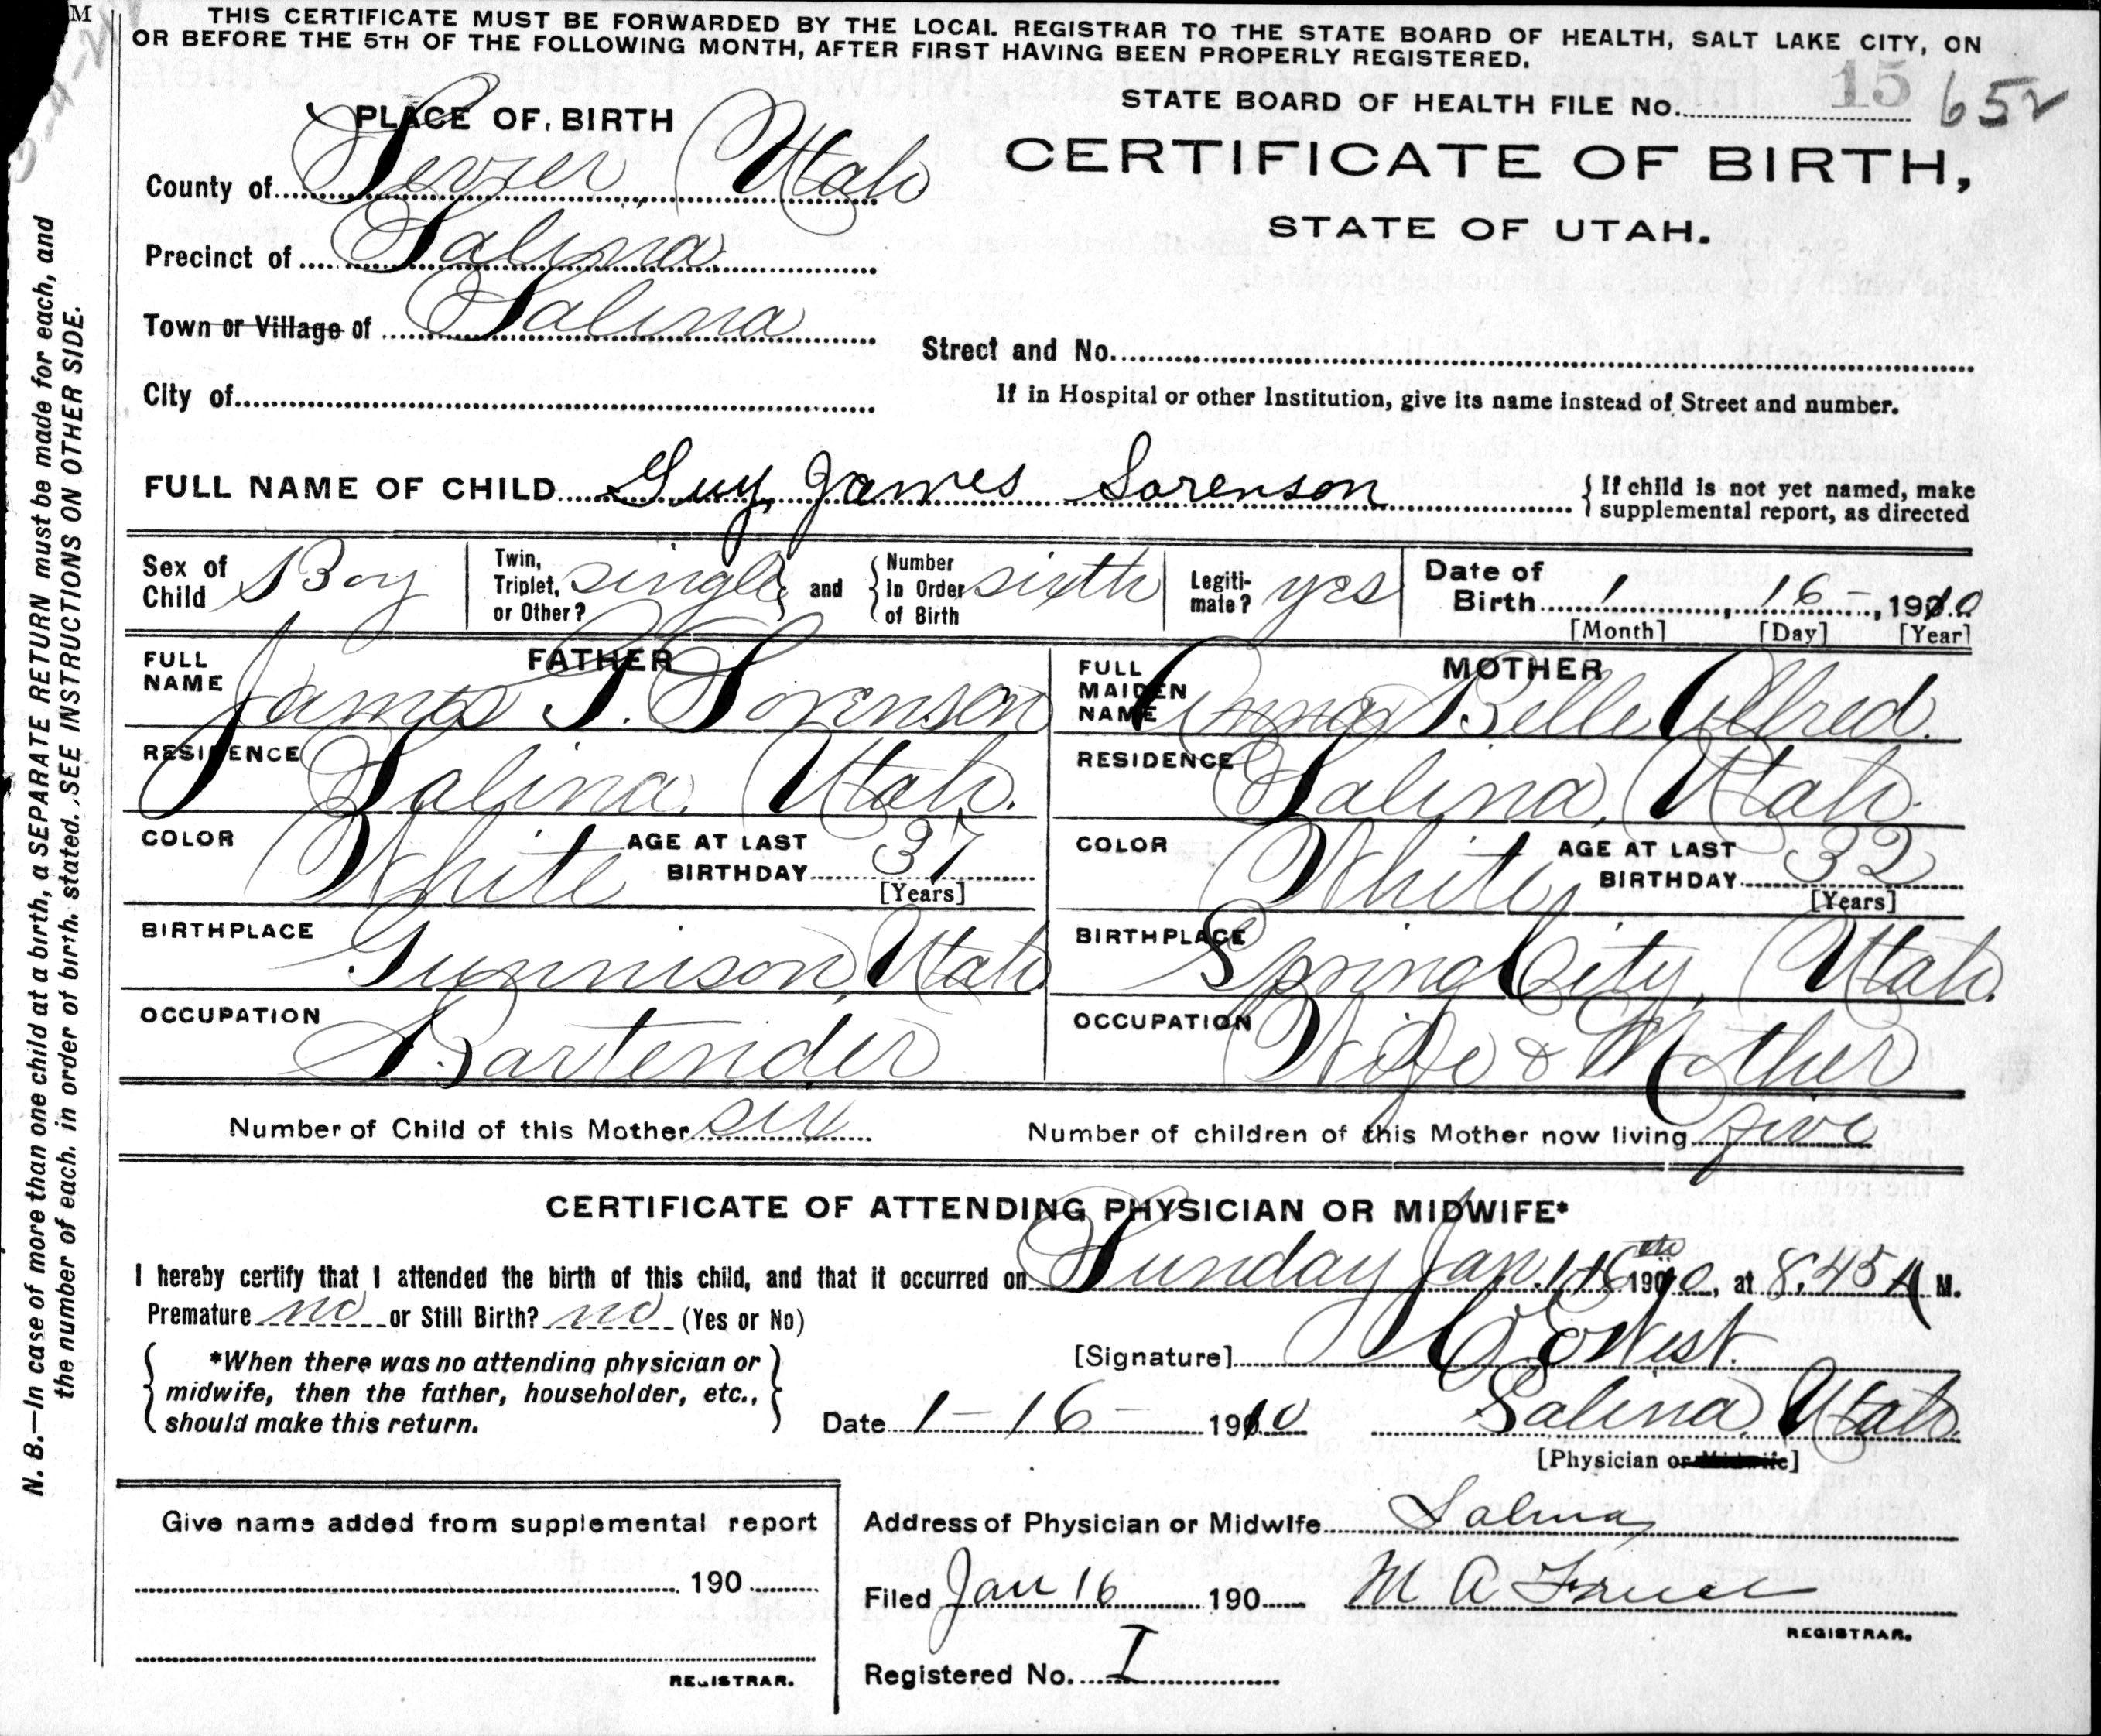 THIS CERTIFICATE MUST BE FORWARDED BY THE LOCAL REGISTRAR TO THE STATE BOARD OF HEALTH, SALT LAKE CITY, ON
OR BEFORE THE 5TH OF THE FOLLOWING MONTH, AFTER FIRST HAVING BEEN PROPERLY REGISTERED.
STATE BOARD OF HEALTH FILE No. 15 652
PLACE OF BIRTH
CERTIFICATE OF BIRTH,
STATE OF UTAH.
County of Sevier, Utah
Precinct of Salina
Town or Village of Salina
Street and No.
City of
If in Hospital or other Institution, give its name instead of Street and number.
FULL NAME OF CHILD Guy James Sorenson { If child is not yet named, make
supplemental report, as directed
Sex of Child Boy Twin, Triplet, or Other? single } and { Number In Order of Birth sixth Legitimate? yes Date of Birth 1, 16-, 1910
[Month] [Day] [Year]
FATHER
FULL NAME James P. Sorenson
RESIDENCE Salina, Utah.
COLOR White AGE AT LAST BIRTHDAY 37
[Years]
BIRTHPLACE Gunnison, Utah
OCCUPATION Bartender
MOTHER
FULL MAIDEN NAME Anna Belle Allred.
RESIDENCE Salina, Utah.
COLOR White, AGE AT LAST BIRTHDAY 32
[Years]
BIRTHPLACE Spring City, Utah.
OCCUPATION Wife & Mother
Number of Child of this Mother six Number of children of this Mother now living five
CERTIFICATE OF ATTENDING PHYSICIAN OR MIDWIFE*
I hereby certify that I attended the birth of this child, and that it occurred on Sunday Jan. 16th 1910, at 8,45 A M.
Premature no or Still Birth? no (Yes or No)
[Signature] West.
*When there was no attending physician or
midwife, then the father, householder, etc.,
should make this return.
Date 1-16- 1910 Salina, Utah.
[Physician or Midwife]
Give name added from supplemental report
190
REGISTRAR.
Address of Physician or Midwife Salina
Filed Jan 16 190 M A
REGISTRAR.
Registered No. I
N. B.—In case of more than one child at a birth, a SEPARATE RETURN must be made for each, and
the number of each, in order of birth, stated. SEE INSTRUCTIONS ON OTHER SIDE.